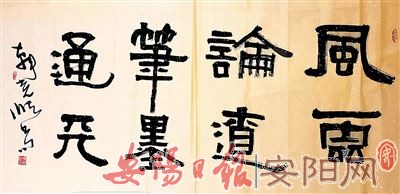 風
論道
筆墨
通天
安陽日報 安阳网